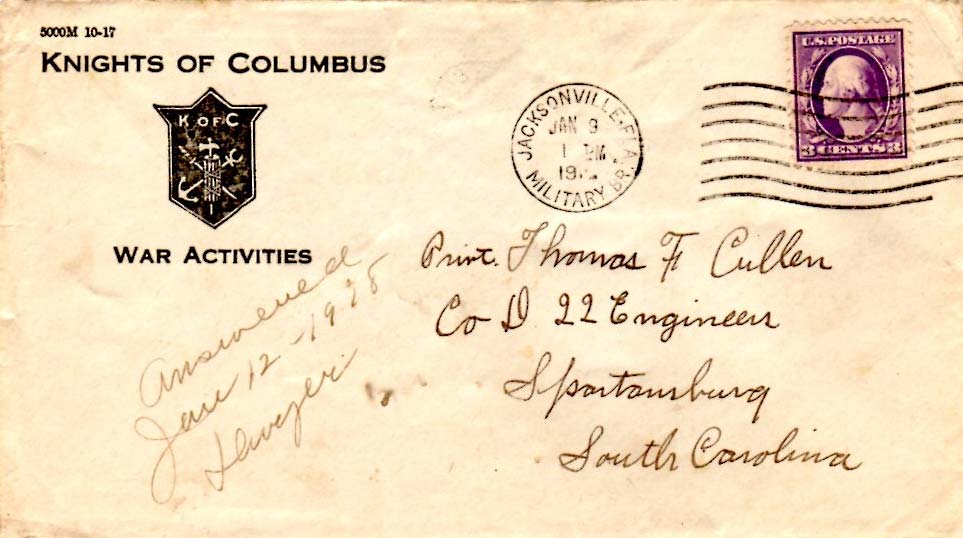 5000M 10-17
KNIGHTS OF COLUMBUS
K OF C
WAR ACTIVITIES
JACKSONVILLE, FLA.
JAN 9
1 PM
MILITARY BR.
U.S. POSTAGE
3 CENTS 3
Privt. Thomas F Cullen
Co D 22 Engineers
Spartansburg
South Carolina
Answered
Jan 12-1918